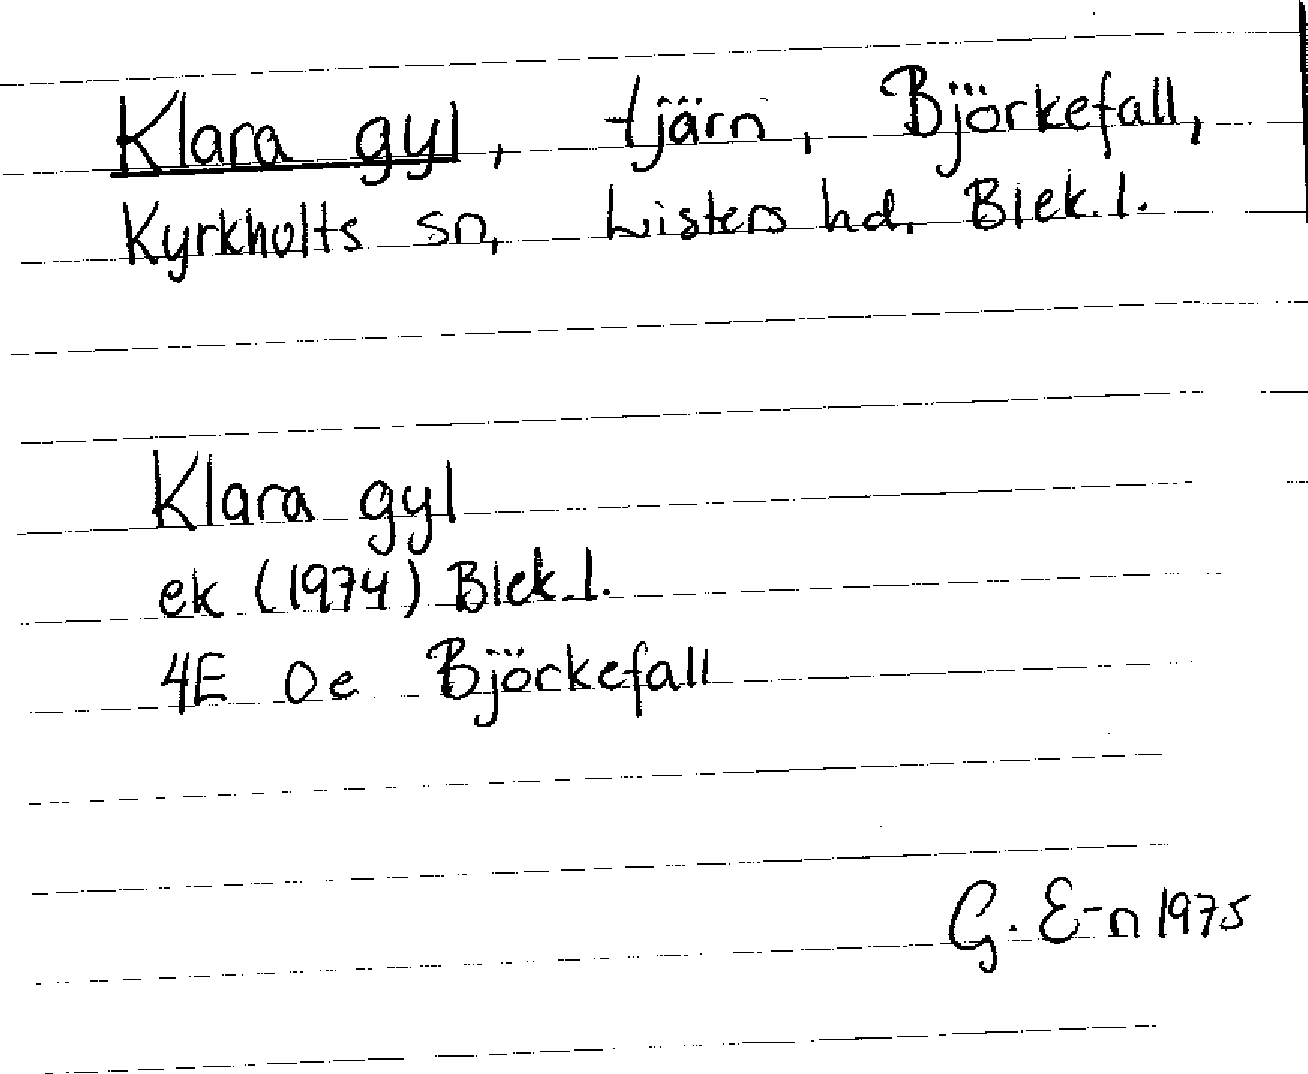 Klara gyl, tjärn, Björkefall,
Kyrkhults sn, Listers hd. Blek. l.
Klara gyl
ek (1974) Blek. l.
4E 0e Björkefall
G. E-n 1975